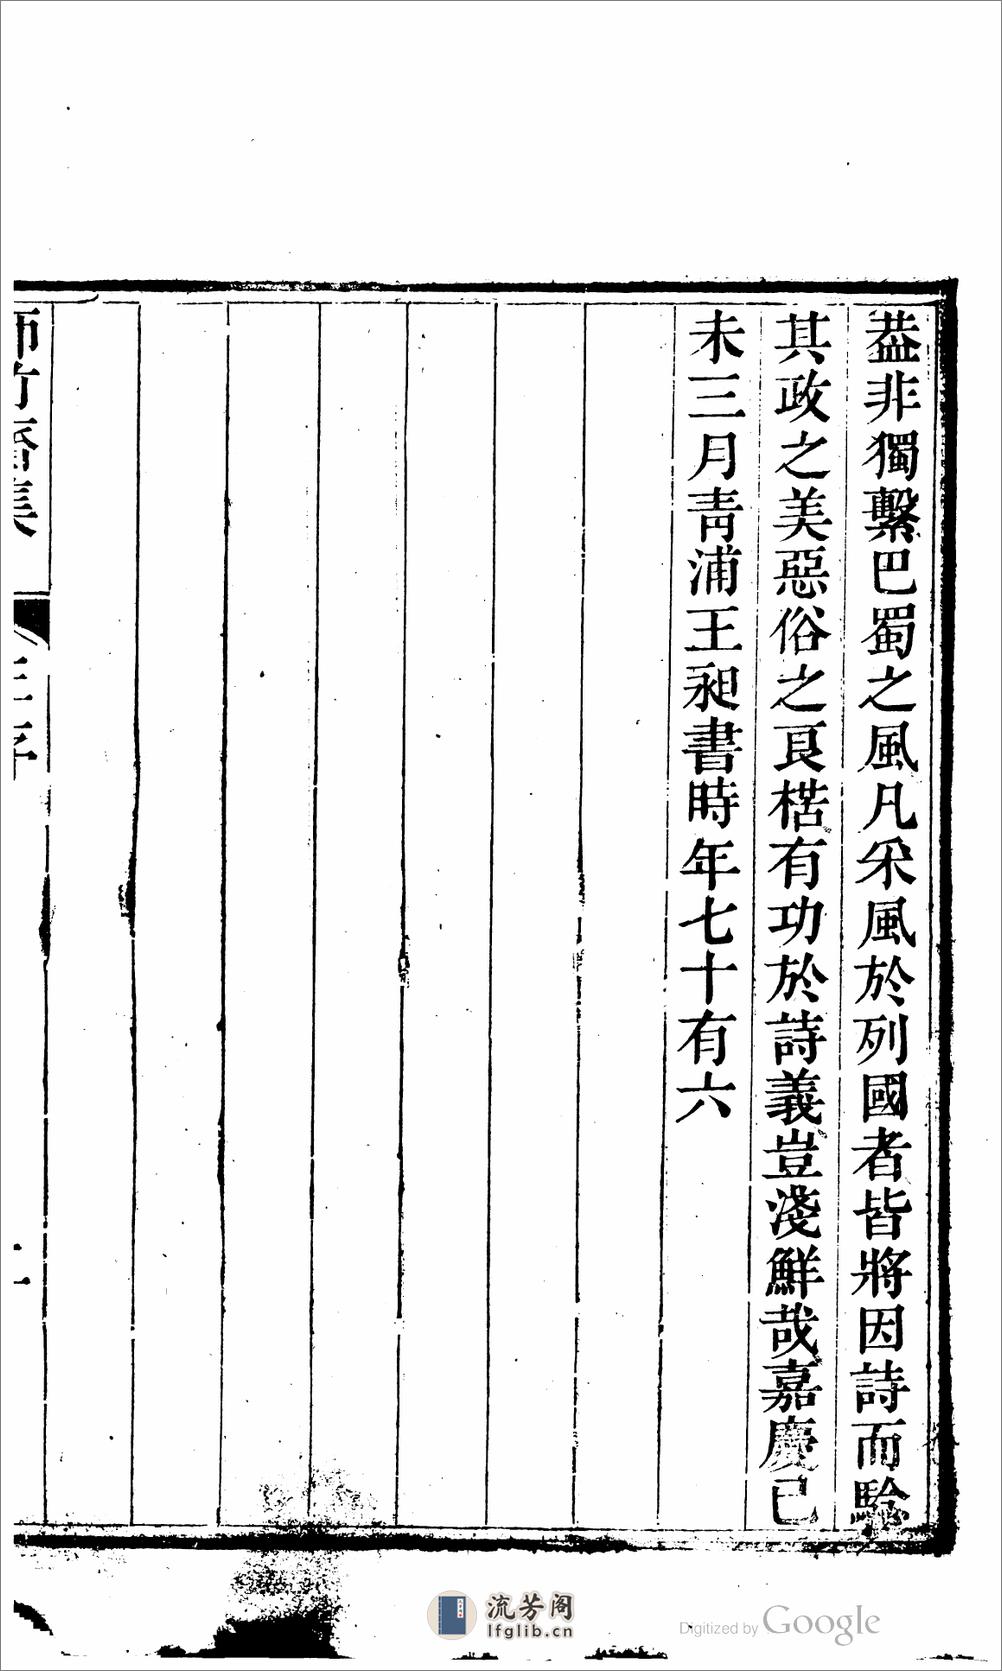 葢非獨繫巴蜀之風凡采風於列國者皆將因詩而驗
其政之美惡俗之良楛有功於詩義豈淺鮮哉嘉慶己
未三月青浦王昶書時年七十有六
師竹齋集
王序
流芳阁
lfglib.cn
Digitized by Google